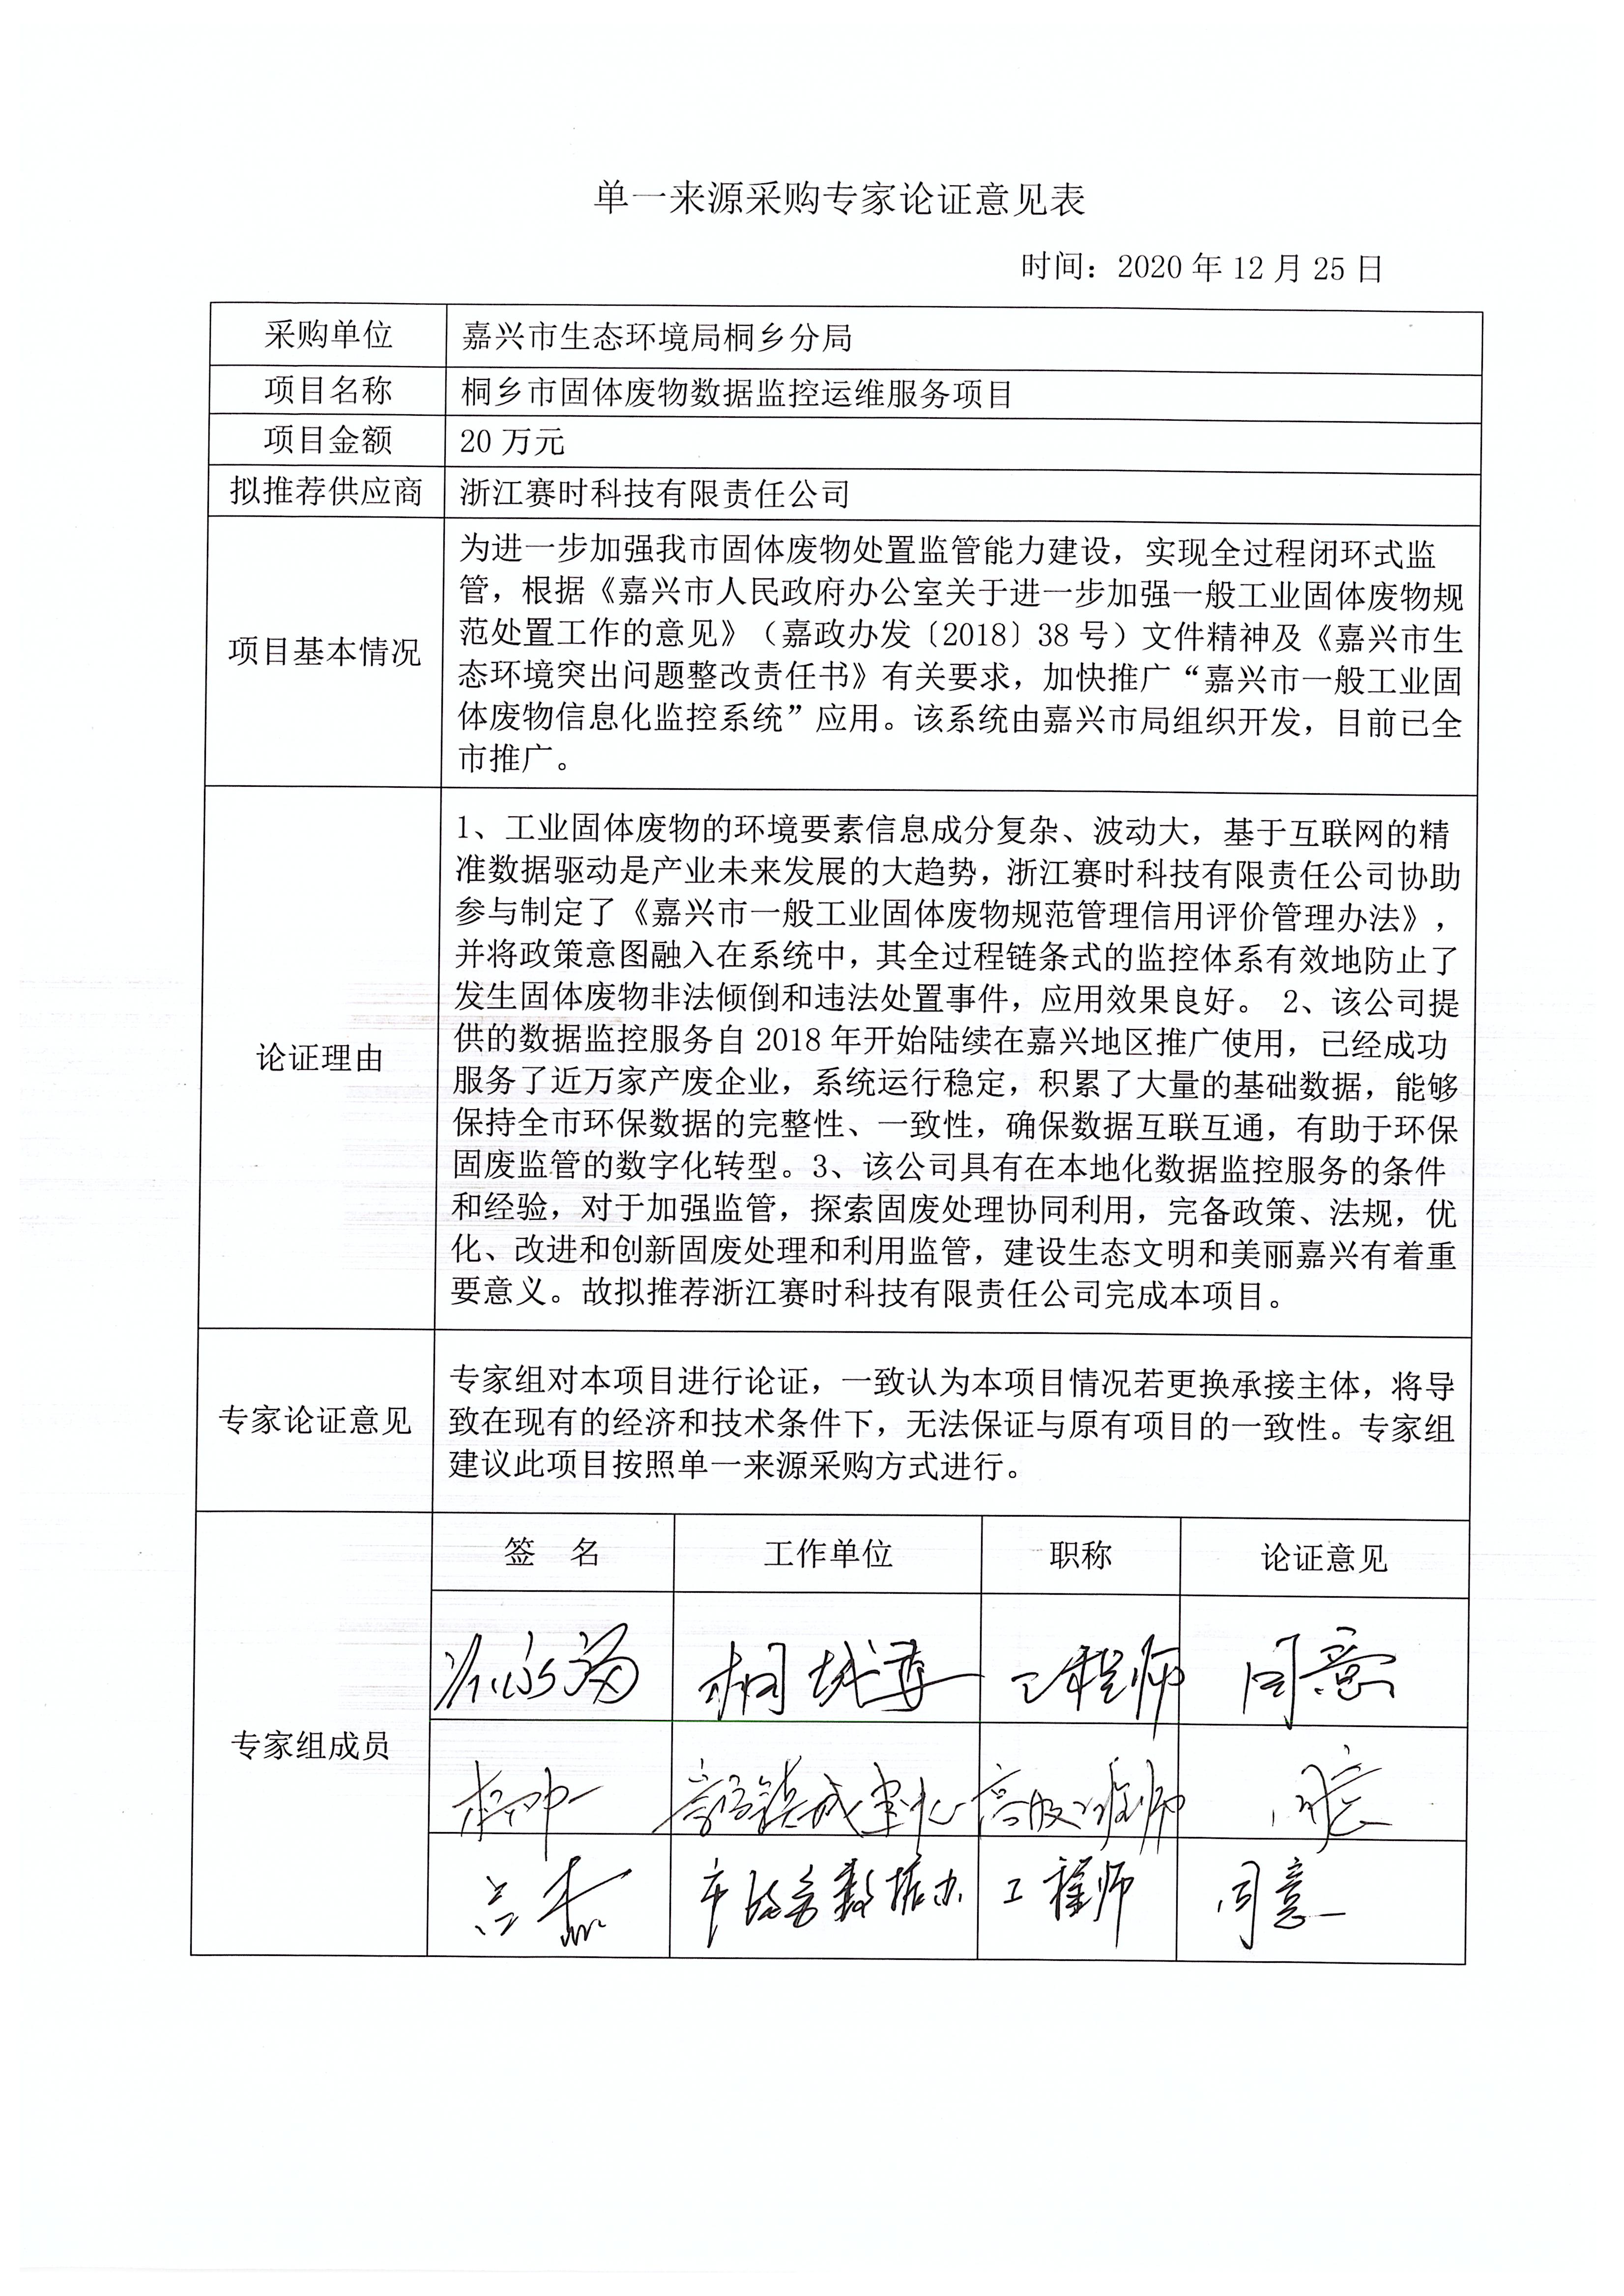 单一来源采购专家论证意见表
时间：2020 年 12 月 25 日
采购单位
嘉兴市生态环境局桐乡分局
项目名称
桐乡市固体废物数据监控运维服务项目
项目金额
20 万元
拟推荐供应商
浙江赛时科技有限责任公司
项目基本情况
为进一步加强我市固体废物处置监管能力建设，实现全过程闭环式监
管，根据《嘉兴市人民政府办公室关于进一步加强一般工业固体废物规
范处置工作的意见》（嘉政办发〔2018〕38 号）文件精神及《嘉兴市生
态环境突出问题整改责任书》有关要求，加快推广“嘉兴市一般工业固
体废物信息化监控系统”应用。该系统由嘉兴市局组织开发，目前已全
市推广。
论证理由
1、工业固体废物的环境要素信息成分复杂、波动大，基于互联网的精
准数据驱动是产业未来发展的大趋势，浙江赛时科技有限责任公司协助
参与制定了《嘉兴市一般工业固体废物规范管理信用评价管理办法》，
并将政策意图融入在系统中，其全过程链条式的监控体系有效地防止了
发生固体废物非法倾倒和违法处置事件，应用效果良好。 2、该公司提
供的数据监控服务自 2018 年开始陆续在嘉兴地区推广使用，已经成功
服务了近万家产废企业，系统运行稳定，积累了大量的基础数据，能够
保持全市环保数据的完整性、一致性，确保数据互联互通，有助于环保
固废监管的数字化转型。3、该公司具有在本地化数据监控服务的条件
和经验，对于加强监管，探索固废处理协同利用，完备政策、法规，优
化、改进和创新固废处理和利用监管，建设生态文明和美丽嘉兴有着重
要意义。故拟推荐浙江赛时科技有限责任公司完成本项目。
专家论证意见
专家组对本项目进行论证，一致认为本项目情况若更换承接主体，将导
致在现有的经济和技术条件下，无法保证与原有项目的一致性。专家组
建议此项目按照单一来源采购方式进行。
专家组成员
签 名 工作单位 职称 论证意见
工程师 同意
高级工程师 同意
工程师 同意